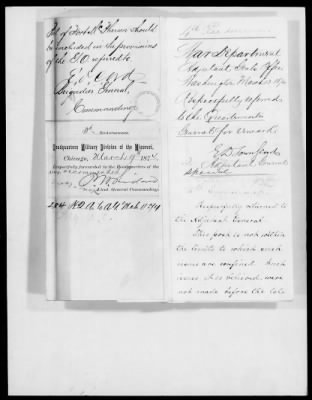 of Fort McPherson should
be included in the provisions
of the G.O. referred to
Ed. Ord
Brigadier General,
Commanding
3d Endorsement.
Headquarters Military Division of the Missouri,
Chicago, March 9 1874
Respectfully forwarded to the Headquarters of the
Army
P. H. Sheridan
Lieut. General Commanding.
4th Endorsement
War Department
Adjutant Genls Office
Washington March
Respectfully referred
to the Quartermaster
General for remark.
E D Townsend
Adjutant General
Respectfully returned
to the Adjutant General.
This post is not within
the limits to which such
issues are confined. Such
issues
not made before the late